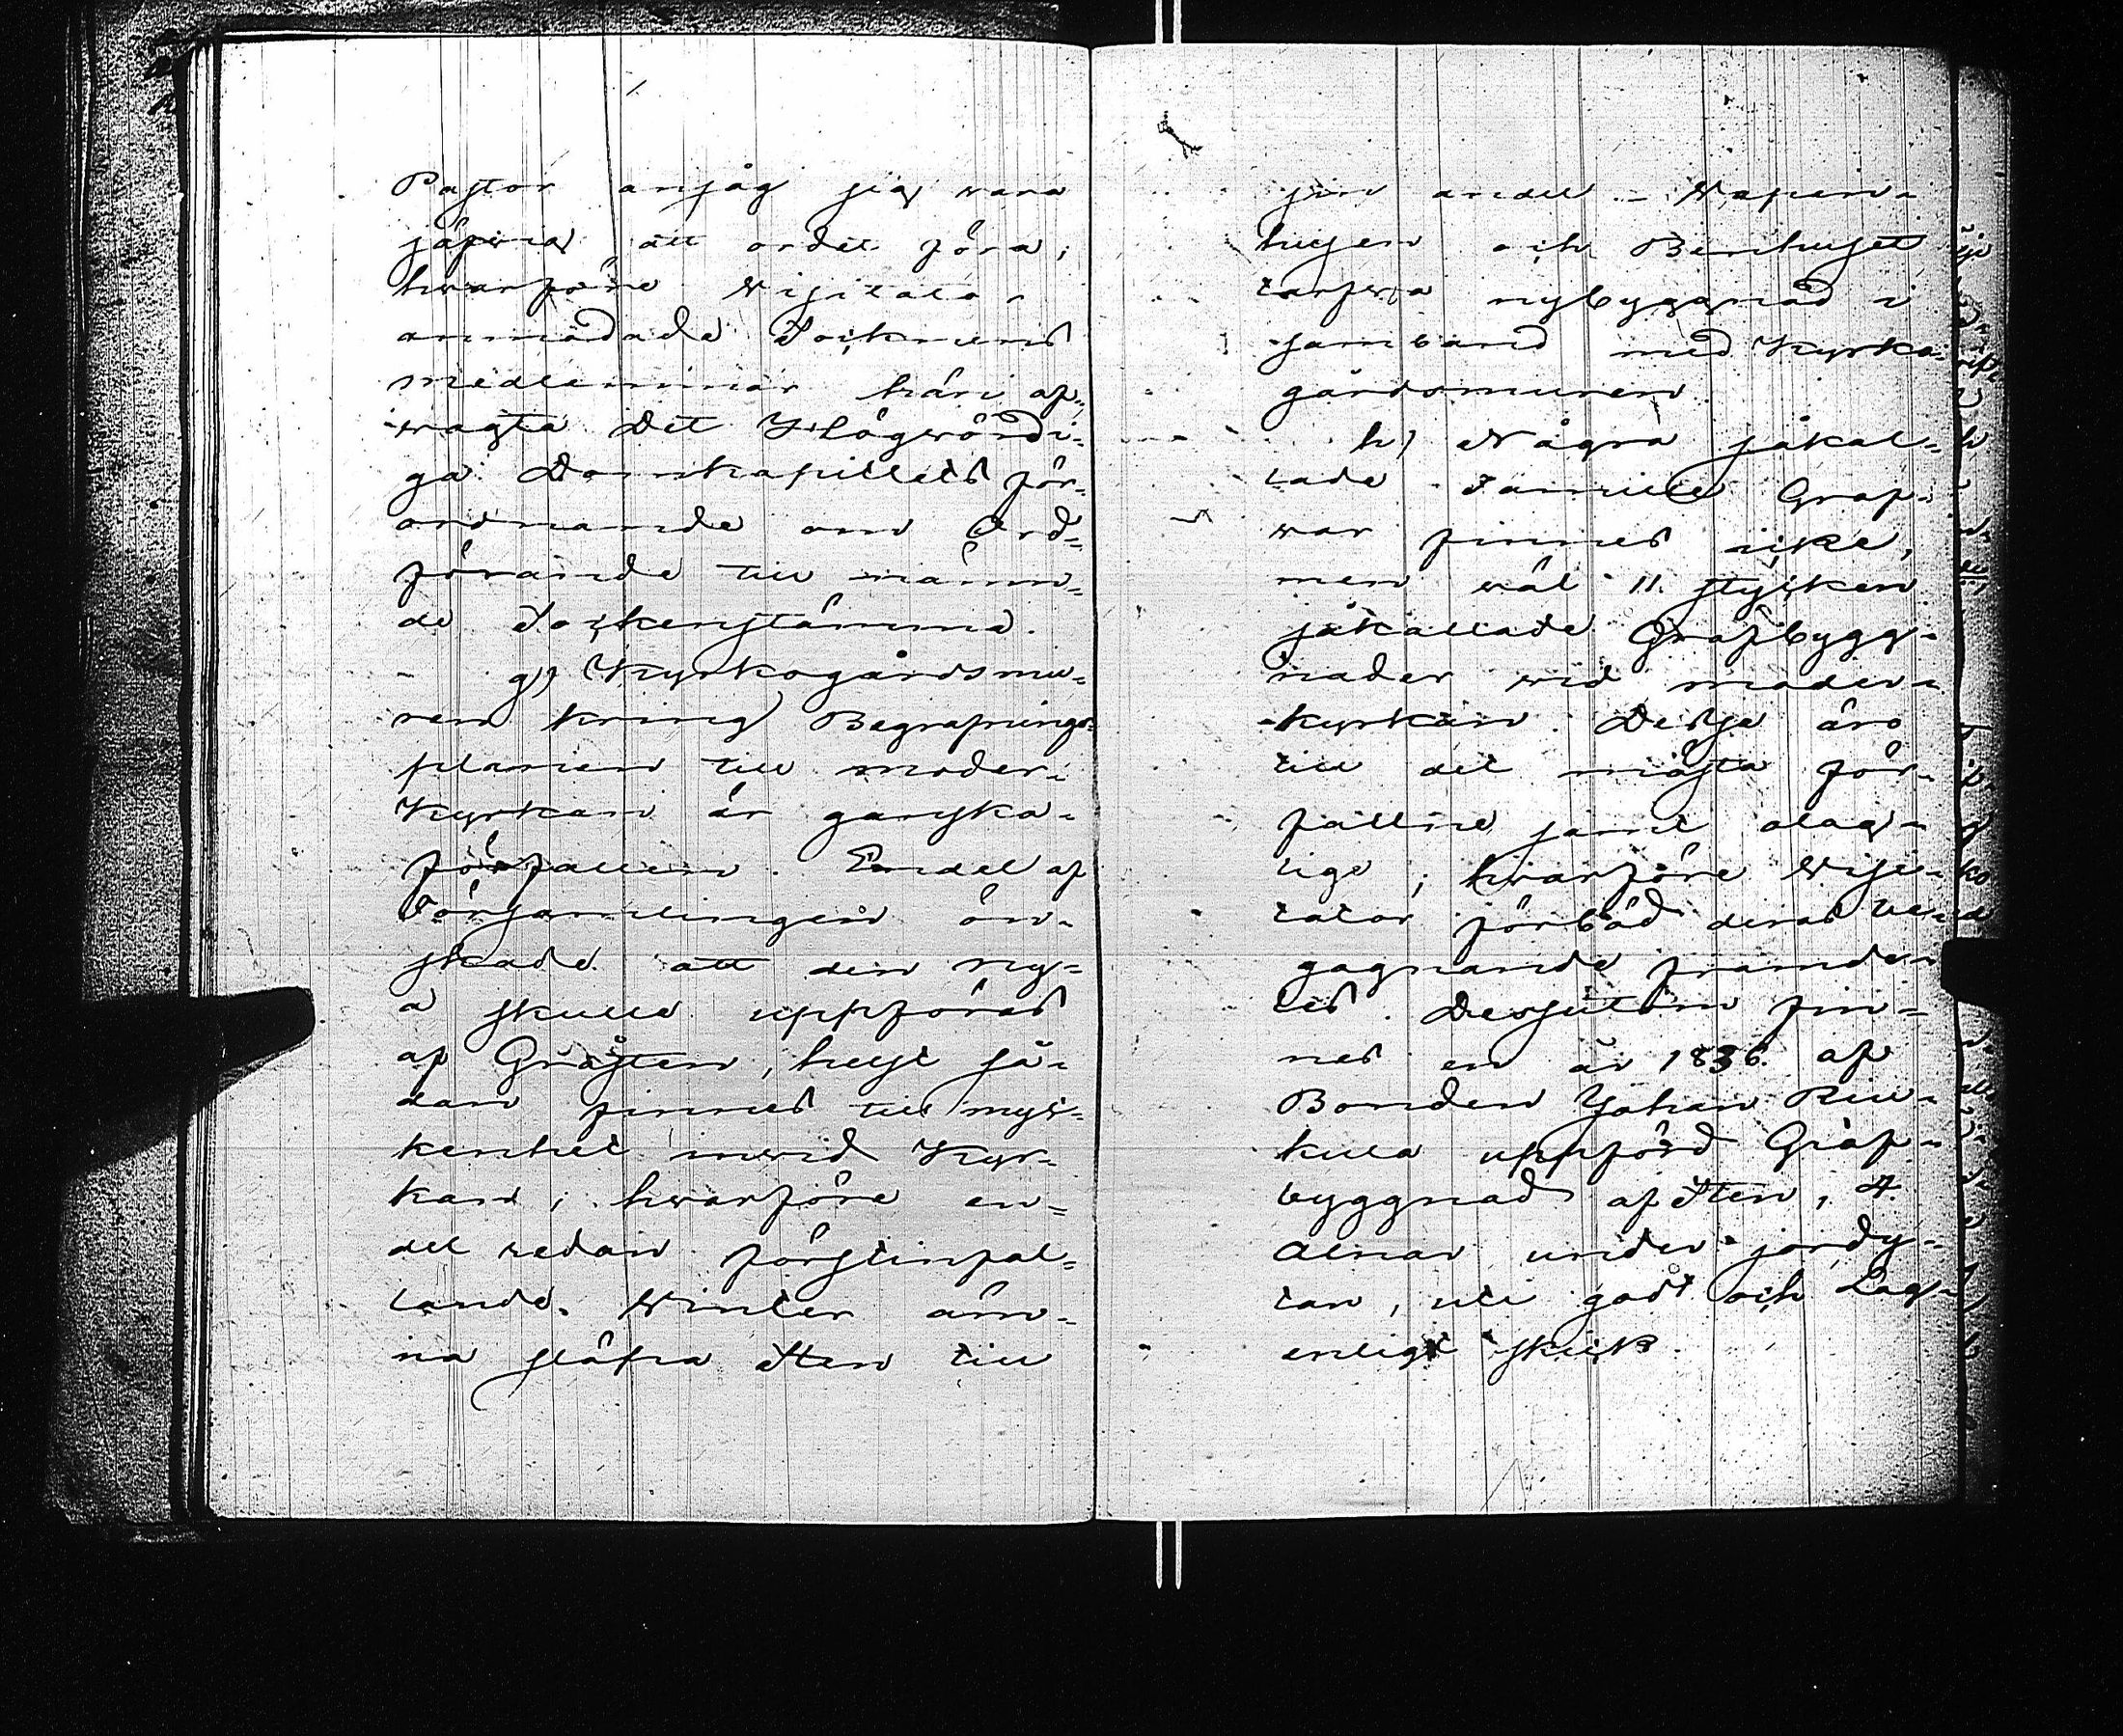 Pastor ansåg sig vara
jäfvig att ordet föra;
hvarföre Visitator
anmodade Socknens
medlemmar häri af-
vagta Det Högvördi-
ga Domkapitlets för-
ordnande om Ord-
förande till nämn-
de Sockenstämma.
g) Kyrkogårdsmu-
ren kring Begrafnings-
planen till moder-
Kyrkan är ganska
förfallen. Endel af
Församlingen ön-
skade att den ny-
a skulle uppföras
af Gråsten, helst så-
dan finnes till myc-
kenhet invid Kyr-
kan; hvarföre en-
del redan förstinfal-
lande Winter äm-
na släpa Sten till
sin andel. Vapen-
husen och Benhuset
tarfva nybyggnad i
samband med Kyrko-
gårdsmuren.
h) Några såkal-
lade Famille Graf-
var finnes icke,
men väl 11. stycken
såkallade Grafbygg-
nader vid moder-
kyrkan. Desse äro
till det mästa för-
fallne samt olag-
lige; hvarföre Visi-
tator förböd deras be-
gagnande framde-
les. Dessutom fin-
nes en år 1836 af
Bonden Johan
uppförd Graf-
byggnad af Sten, 4
alnar under jordy-
tan, uti godt och Lag-
enligt skick